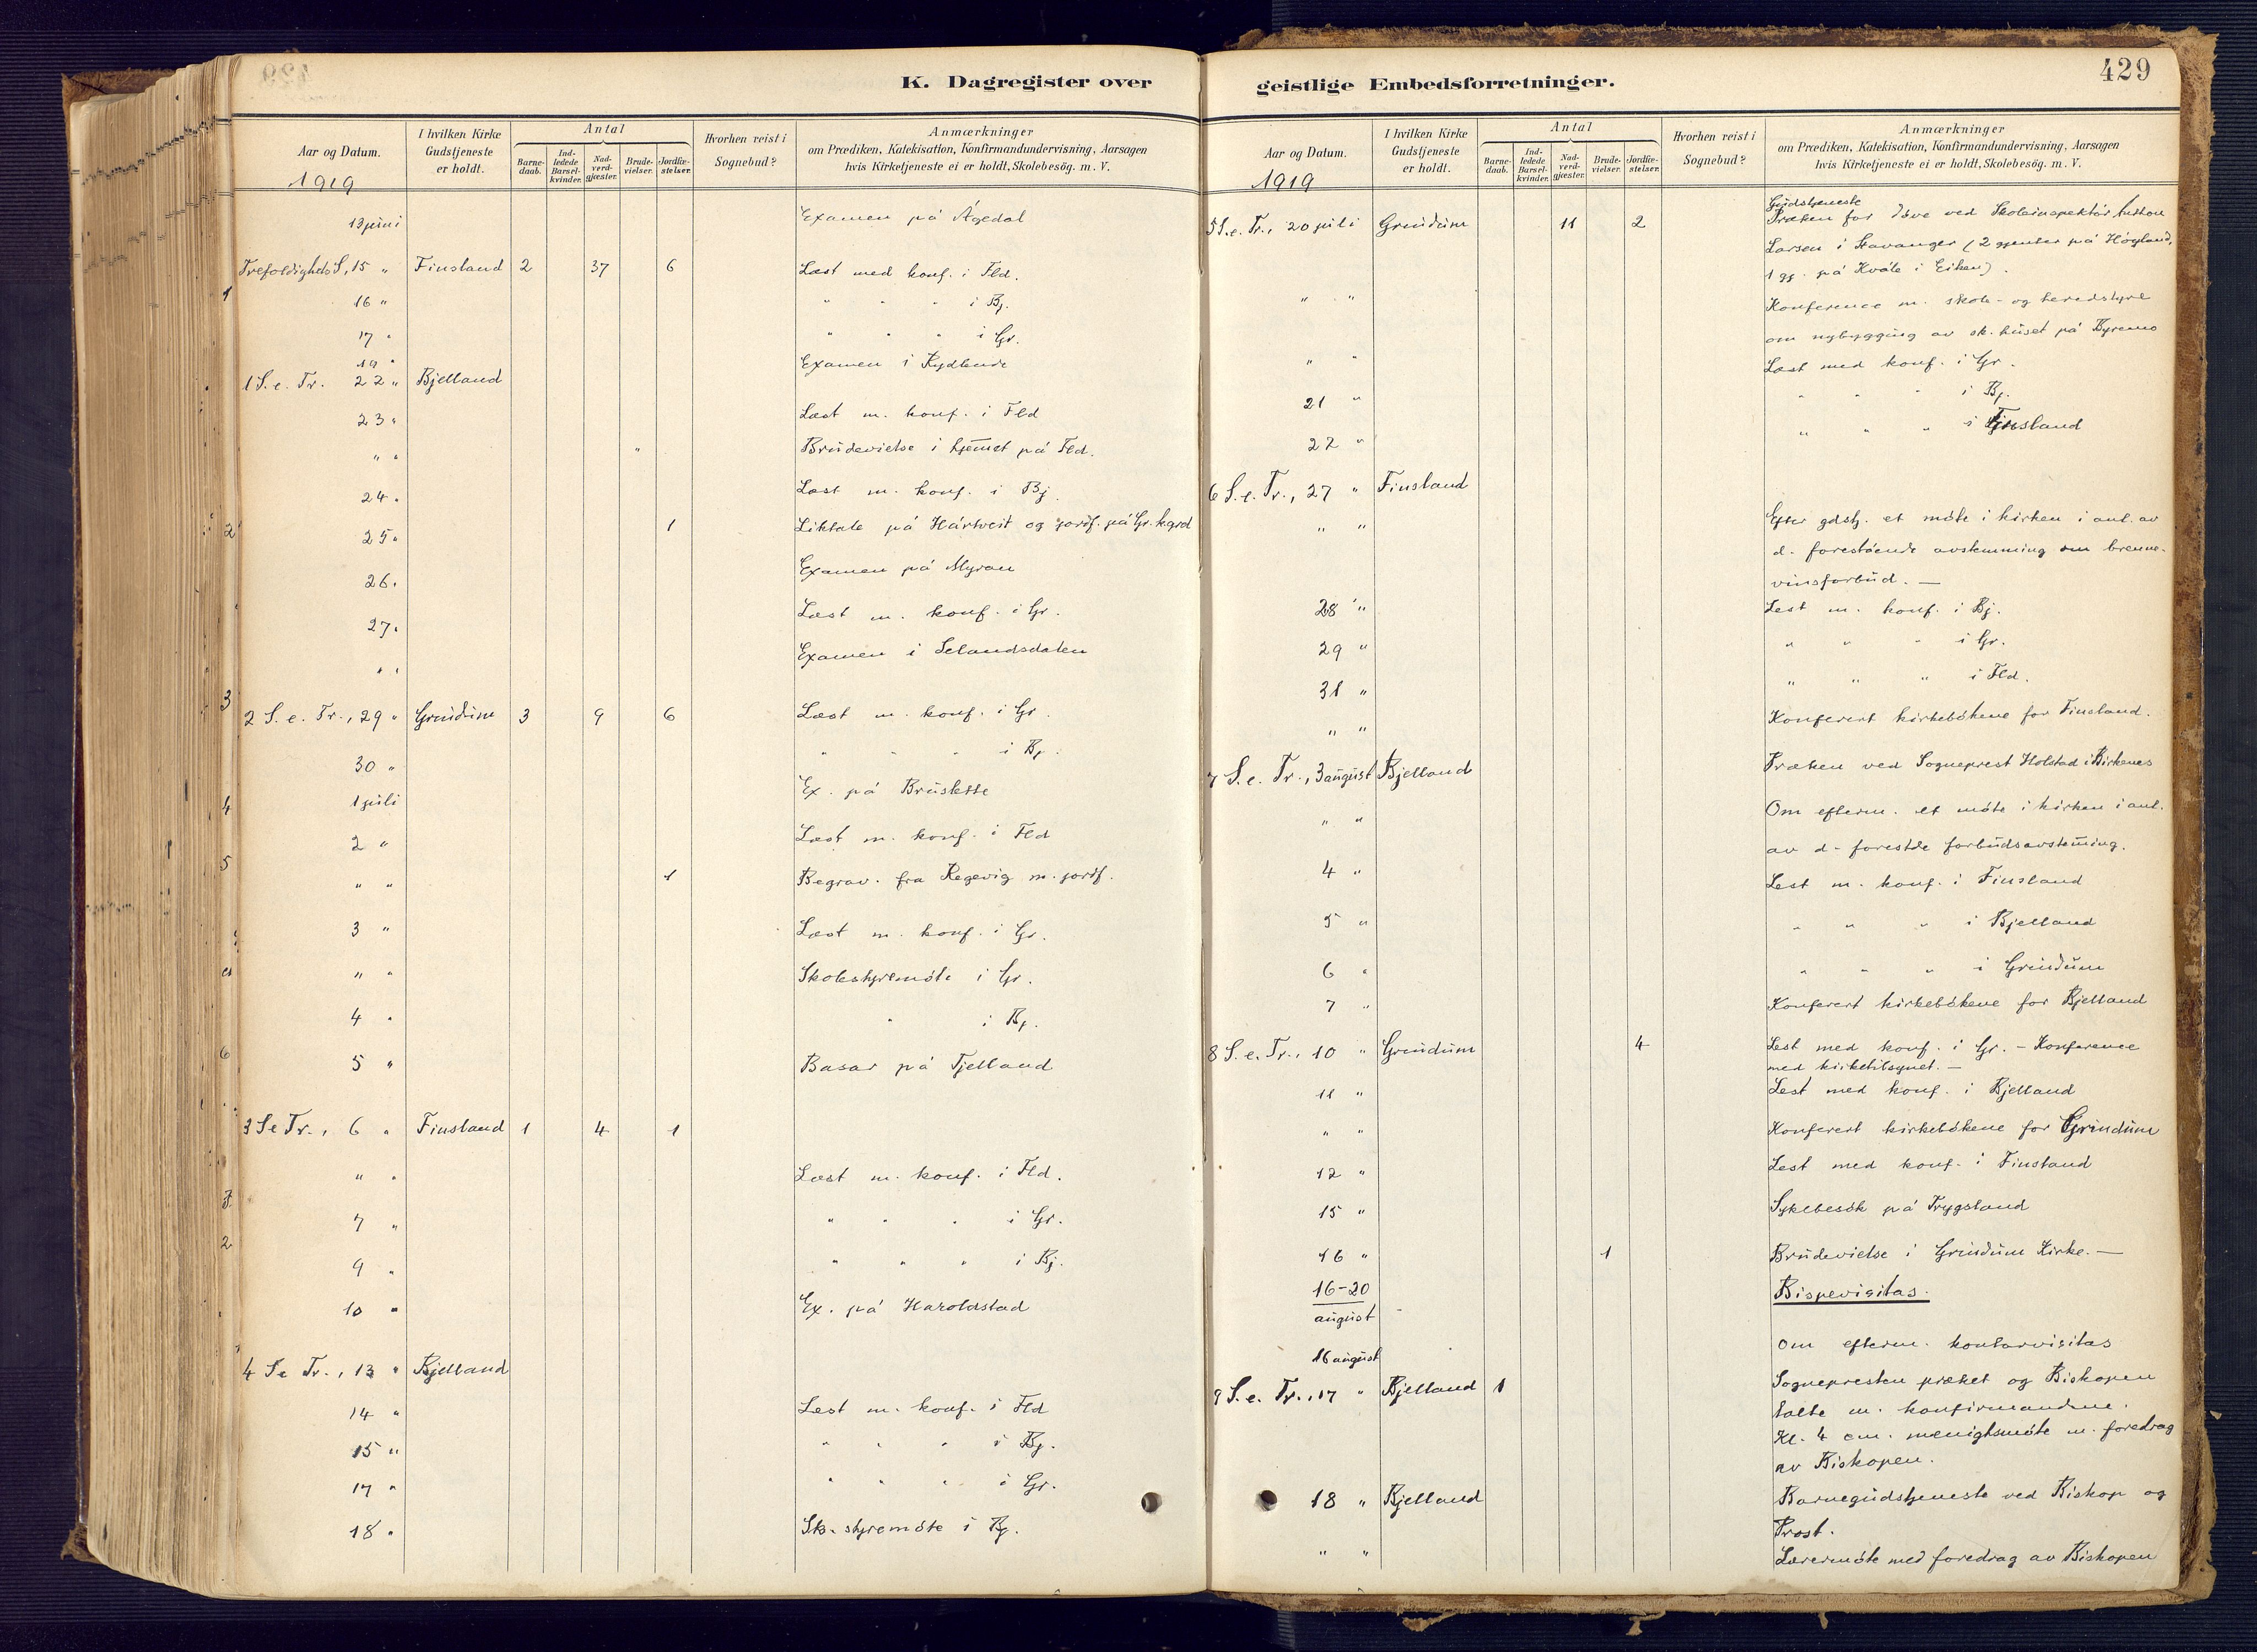 K. Dagregister over
Aar og Datum.
I hvilken Kirke Gudstjeneste er holdt.
Antal
Barnedaab.
Indledede Barselkvinder.
Nadverdgjæster.
Brudevielser.
Jordfæstelser.
Hvorhen reist i Sognebud?
Anmærkninger
om Prædiken, Katekisation, Konfirmandundervisning, Aarsagen
hvis Kirketjeneste ei er holdt, Skolebesög. m. V.
1919
13 juni Examen på Ågedal
Trefoldigheds S, 15 " Finsland 2 37 6 Læst med konf. i Fld.
16 " " " " i Bj.
17 " " " " i Gr.
19 " Examen i Rydlende
1 S. e. Tr. 22 " Bjelland
23 " Læst m. konf. i Fld
" " " Brudevielse i hjemet på Fld.
24 " Læst m. konf. i Bj.
25 " 1 Liktale på Hårtveit og jordf. på Gr. k.grd
26 " Examen på Myran
27 " Læst m. konf. i Gr.
" " Examen i Selandsdalen
2 S. e. Tr., 29 " Grindum 3 9 6 Læst m. konf. i Gr.
30 " " " " i Bj.
1 juli Ex. på Bruslette
2 " Læst m. konf. i Fld
" " 1 Begrav. fra Regevig m. jordf.
3 " Læst m. konf. i Gr.
" " Skolestyremöte i Gr.
4 " " i Bj.
5 " Basar på Tjelland
3 S e Tr., 6 " Finsland 1 4 1
" " Læst m. konf. i Fld.
7 " " " " i Gr.
9 " " " " i Bj.
10 " Ex. på Haroldstad
4 S e Tr., 13 " Bjelland
14 " Lest m. konf. i Fld
15 " " " " i Bj.
17 " " " " i Gr.
18 " Sk. styremöte i Bj.
geistlige Embedsforretninger.
429
Aar og Datum.
I hvilken Kirke Gudstjeneste er holdt.
Antal
Barnedaab.
Indledede Barselkvinder.
Nadverdgjæster.
Brudevielser.
Jordfæstelser.
Hvorhen reist i Sognebud?
Anmærkninger
om Prædiken, Katekisation, Konfirmandundervisning, Aarsagen
hvis Kirketjeneste ei er holdt, Skolebesög. m. V.
1919
Gudstjeneste
5 S. e. Tr., 20 juli Grindum 11 2 Præken for döve ved Skoleinspektör
Larsen i Stavanger (2 gjenter på Högland,
1 gj. på Kvåle i Eiken).
" " Konference m. skole- og heredstyre
om nybygging av sk. huset på Byremo
" " Læst med konf. i Gr.
21 " " " " i Bj.
22 " " " " i Finsland
6 S. e. Tr., 27 " Finsland
" " Efter gdstj. et möte i kirken i anl. av
d. forestående avstemming om brenne-
vinsforbud. —
28 " Lest m. konf. i Bj.
29 " " " " i Gr.
31 " " " " i Fld.
" " Konferert kirkebökene for Finsland.
7 S. e. Tr., 3 august Bjelland Præken ved Sogneprest Holstad i Birkenes
" " Om efterm. et möte i kirken i anl.
av d. forestde forbudsavsteming.
4 " Lest m. konf. i Finsland
5 " " " " i Bjelland
6 " " " " i Grindum
7 " Konferert kirkebökene for Bjelland
8 S. e. Tr., 10 " Grindum 4 Lest med konf. i Gr. - Konference
med kirketilsynet. —
11 " Lest med konf. i Bjelland
" " Konferert kirkebökene for Grindum
12 " Lest med konf. i Finsland
15 " Sykebesök på Trygsland
16 " 1 Brudevielse i Grindum Kirke. —
16-20 august Bispevisitas.
16 august Om efterm. kontorvisitas
9 S. e. Tr., 17 " Bjelland 1 Sognepresten præket og Biskopen
talte m. konfirmandene.
Kl. 4 em. menigtsmöte m. foredrag
av Biskopen.
18 " Bjelland Barnegudstjeneste ved Biskop og
Prost.
" " Lærermöte med foredrag av Biskopen